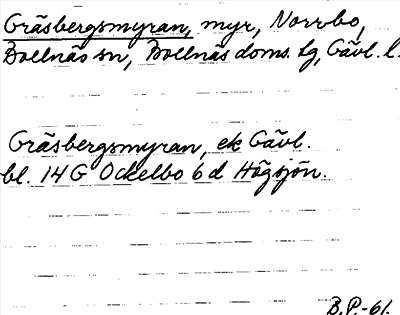 Gräsbergsmyran, myr, Norrbo,
Bollnäs sn, Bollnäs doms. lg, Gävl. l.
Gräsbergsmyran, ek Gävl.
bl. 14 G Ockelbo 6 d Högsjön.
B.P.-61.